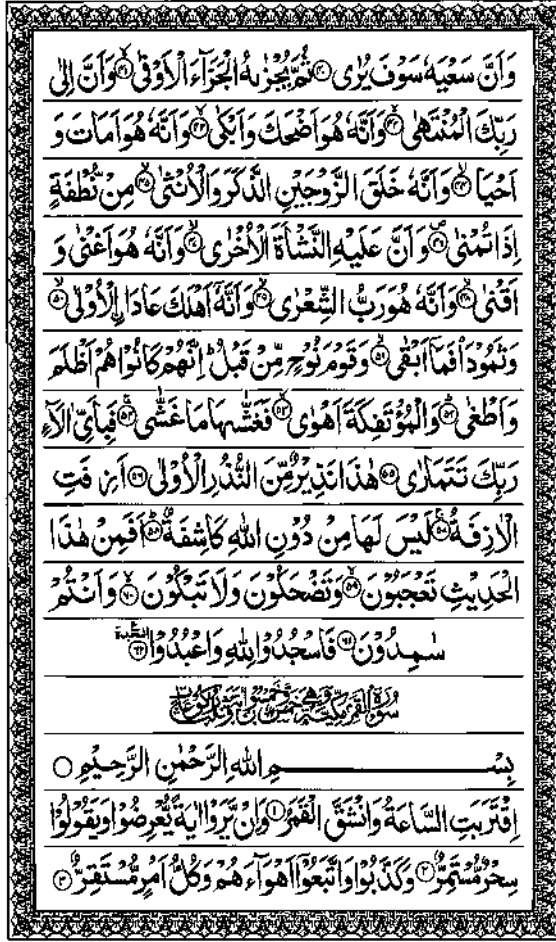 وَاَنَّ سَعْيَهٗ سَوْفَ يُرٰى ۪﴿۴۰﴾ ثُمَّ يُجْزٰىهُ الْجَزَآءَ الْاَوْفٰى ۙ﴿۴۱﴾ وَاَنَّ اِلٰى
رَبِّكَ الْمُنْتَهٰى ۙ﴿۴۲﴾ وَاَنَّهٗ هُوَ اَضْحَكَ وَاَبْكٰى ۙ﴿۴۳﴾ وَاَنَّهٗ هُوَ اَمَاتَ وَ
اَحْيَا ۙ﴿۴۴﴾ وَاَنَّهٗ خَلَقَ الزَّوْجَيْنِ الذَّكَرَ وَالْاُنْثٰى ۙ﴿۴۵﴾ مِنْ نُّطْفَةٍ
اِذَا تُمْنٰى ۪﴿۴۶﴾ وَاَنَّ عَلَيْهِ النَّشْاَةَ الْاُخْرٰى ۙ﴿۴۷﴾ وَاَنَّهٗ هُوَ اَغْنٰى وَ
اَقْنٰى ۙ﴿۴۸﴾ وَاَنَّهٗ هُوَ رَبُّ الشِّعْرٰى ۙ﴿۴۹﴾ وَاَنَّهٗٓ اَهْلَكَ عَادَا ۨالْاُوْلٰى ۙ﴿۵۰﴾
وَثَمُوْدَا۟ فَمَاۤ اَبْقٰى ۙ﴿۵۱﴾ وَقَوْمَ نُوْحٍ مِّنْ قَبْلُ ؕ اِنَّهُمْ كَانُوْا هُمْ اَظْلَمَ
وَاَطْغٰى ؕ﴿۵۲﴾ وَالْمُؤْتَفِكَةَ اَهْوٰى ۙ﴿۵۳﴾ فَغَشّٰىهَا مَا غَشّٰى ۚ﴿۵۴﴾ فَبِاَىِّ اٰلَآءِ
رَبِّكَ تَتَمَارٰى ﴿۵۵﴾ هٰذَا نَذِيْرٌ مِّنَ النُّذُرِ الْاُوْلٰى ﴿۵۶﴾ اَزِفَتِ
الْاٰزِفَةُ ۚ﴿۵۷﴾ لَيْسَ لَهَا مِنْ دُوْنِ اللّٰهِ كَاشِفَةٌ ؕ﴿۵۸﴾ اَفَمِنْ هٰذَا
الْحَدِيْثِ تَعْجَبُوْنَ ۙ﴿۵۹﴾ وَتَضْحَكُوْنَ وَلَا تَبْكُوْنَ ۙ﴿۶۰﴾ وَاَنْتُمْ
سٰمِدُوْنَ ﴿۶۱﴾ فَاسْجُدُوْا لِلّٰهِ وَاعْبُدُوْا ﴿۶۲﴾ السجدة
بِسْمِ اللّٰهِ الرَّحْمٰنِ الرَّحِيْمِ ○
اِقْتَرَبَتِ السَّاعَةُ وَانْشَقَّ الْقَمَرُ ﴿۱﴾ وَاِنْ يَّرَوْا اٰيَةً يُّعْرِضُوْا وَيَقُوْلُوْا
سِحْرٌ مُّسْتَمِرٌّ ﴿۲﴾ وَكَذَّبُوْا وَاتَّبَعُوْٓا اَهْوَآءَهُمْ وَكُلُّ اَمْرٍ مُّسْتَقِرٌّ ﴿۳﴾